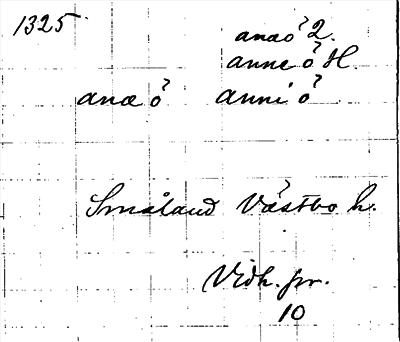 1325.
anaö 2.
anne ö H.
anæ ö anni ö
Småland Västbo h.
Vidh. pr.
10